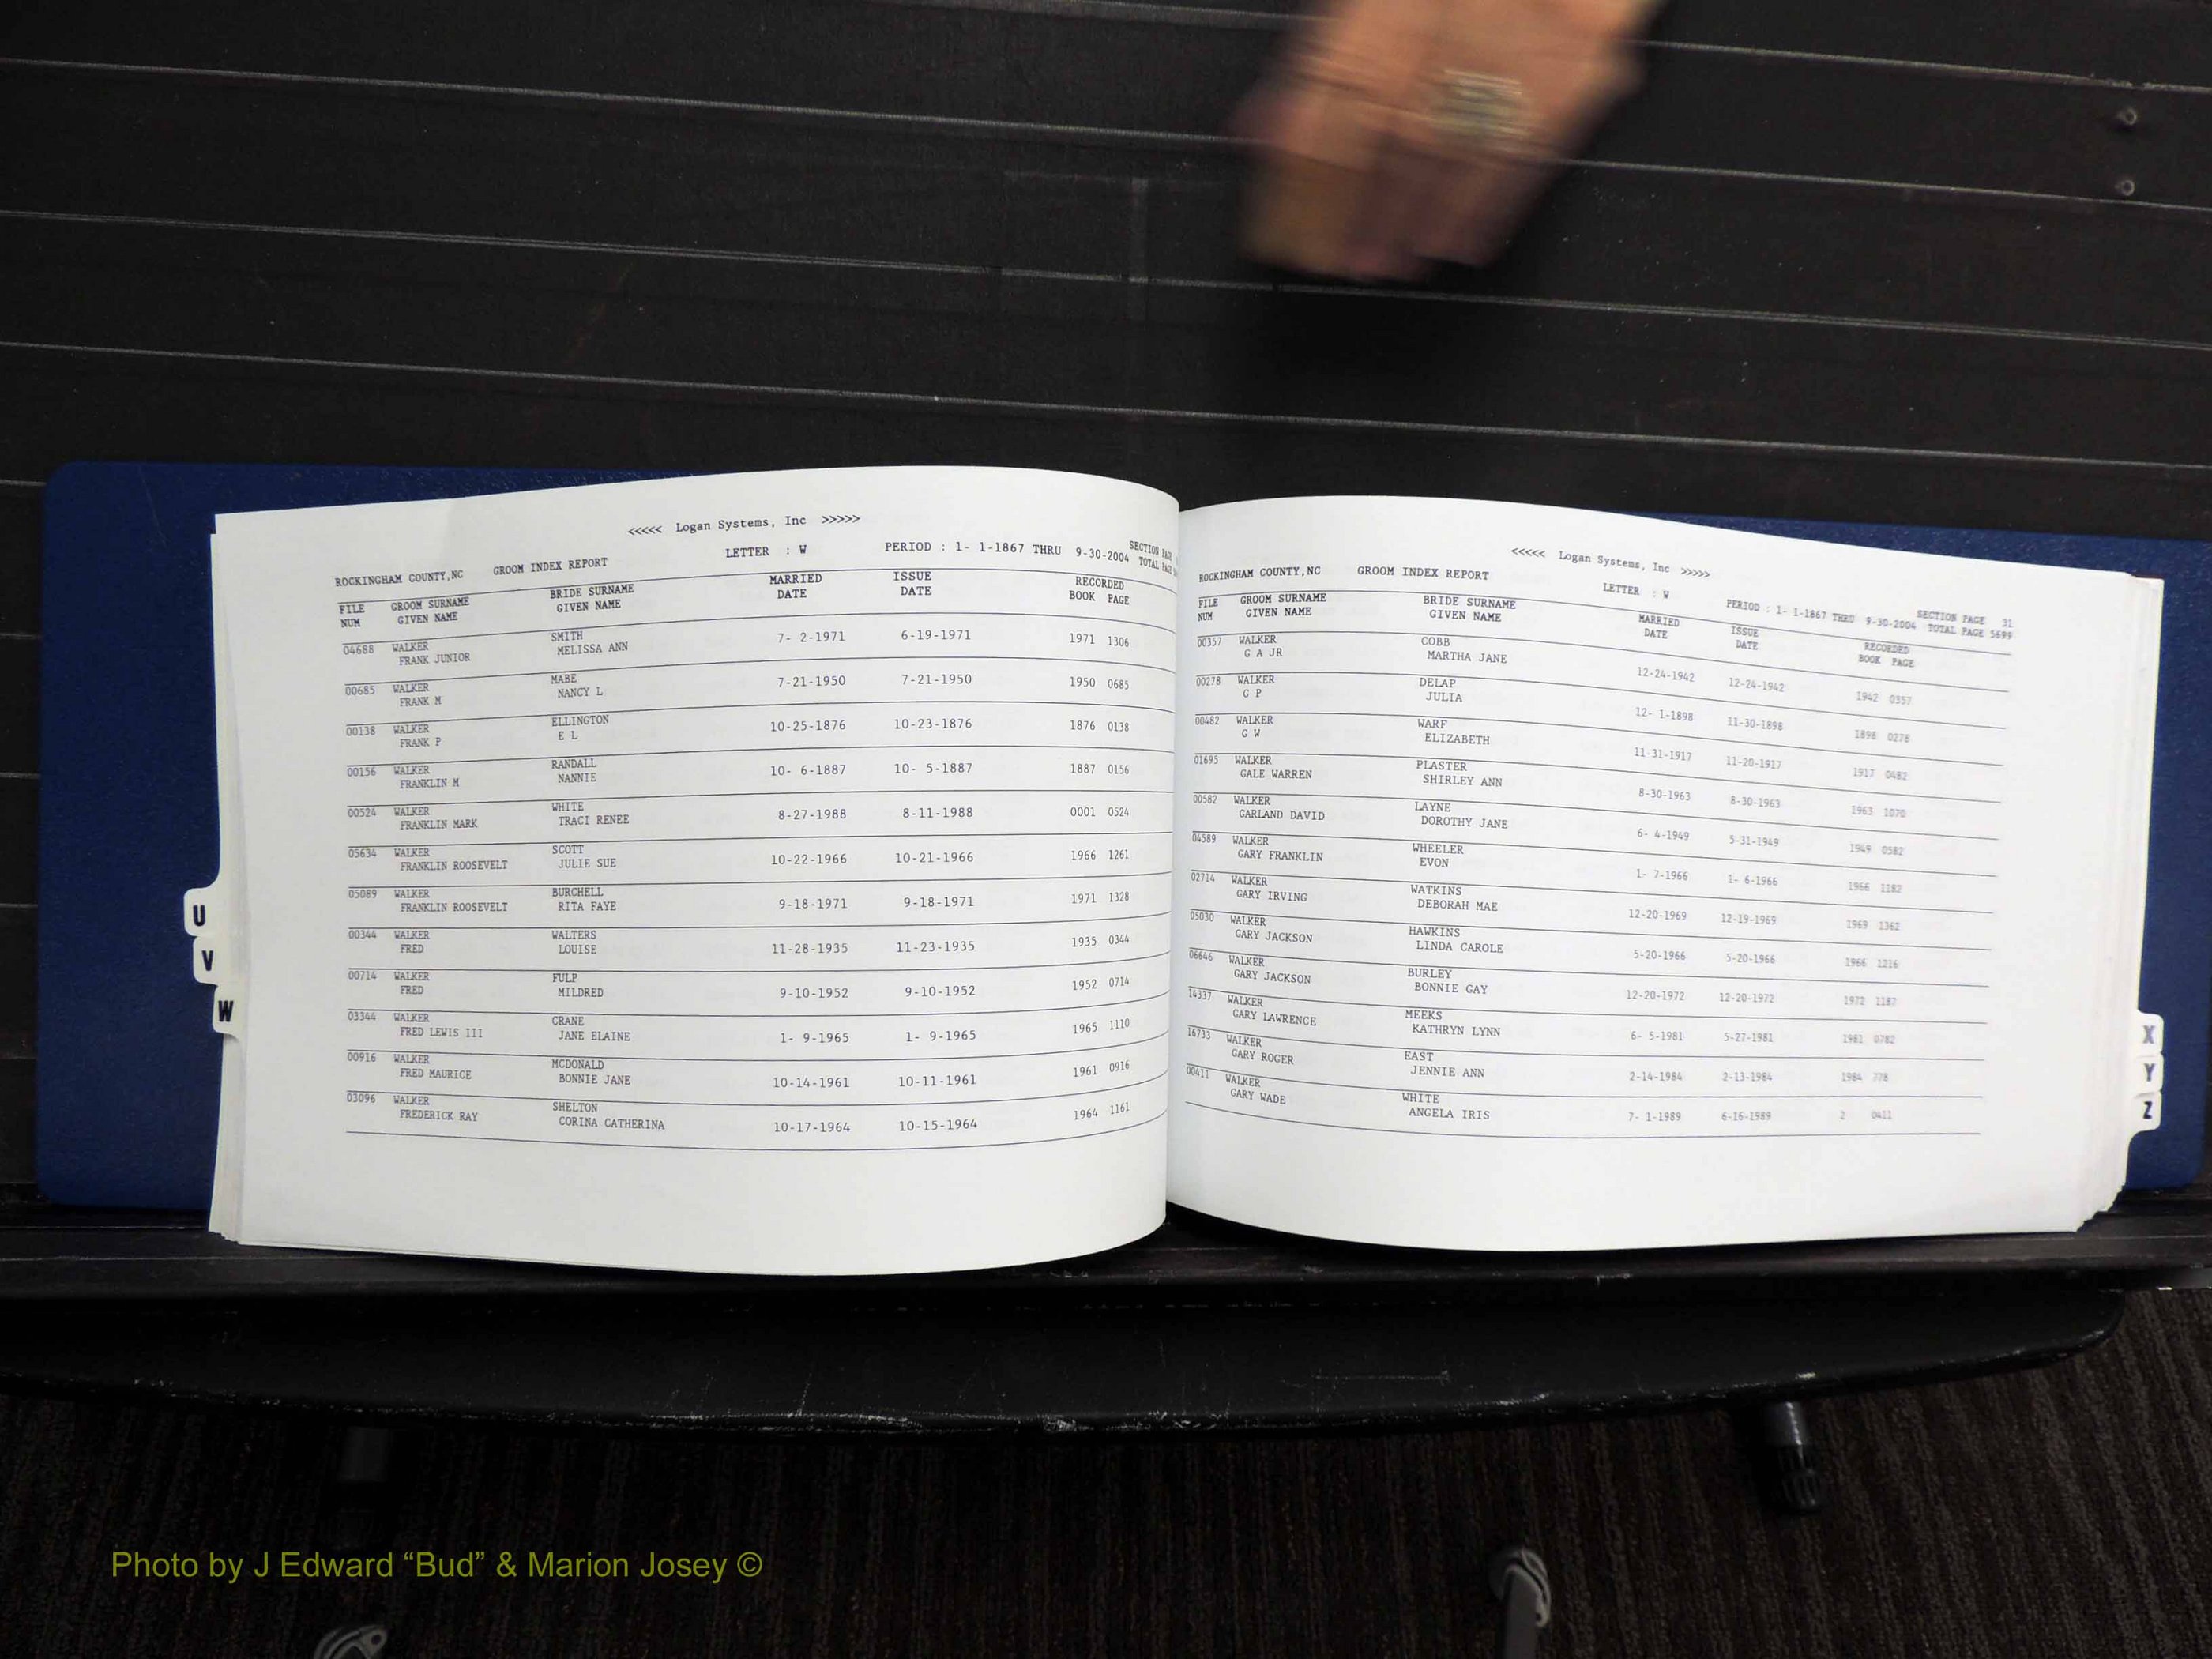 <<<<< Logan Systems, Inc >>>>>
ROCKINGHAM COUNTY,NC GROOM INDEX REPORT LETTER : W PERIOD : 1- 1-1867 THRU 9-30-2004 SECTION PAGE
TOTAL PAGE
FILE GROOM SURNAME BRIDE SURNAME MARRIED ISSUE RECORDED
NUM GIVEN NAME GIVEN NAME DATE DATE BOOK PAGE
04688 WALKER SMITH 7- 2-1971 6-19-1971 1971 1306
FRANK JUNIOR MELISSA ANN
00685 WALKER MABE 7-21-1950 7-21-1950 1950 0685
FRANK M NANCY L
00138 WALKER ELLINGTON 10-25-1876 10-23-1876 1876 0138
FRANK P E L
00156 WALKER RANDALL 10- 6-1887 10- 5-1887 1887 0156
FRANKLIN M NANNIE
00524 WALKER WHITE 8-27-1988 8-11-1988 0001 0524
FRANKLIN MARK TRACI RENEE
05634 WALKER SCOTT 10-22-1966 10-21-1966 1966 1261
FRANKLIN ROOSEVELT JULIE SUE
05089 WALKER BURCHELL 9-18-1971 9-18-1971 1971 1328
FRANKLIN ROOSEVELT RITA FAYE
00344 WALKER WALTERS 11-28-1935 11-23-1935 1935 0344
FRED LOUISE
00714 WALKER FULP 9-10-1952 9-10-1952 1952 0714
FRED MILDRED
03344 WALKER CRANE 1- 9-1965 1- 9-1965 1965 1110
FRED LEWIS III JANE ELAINE
00916 WALKER MCDONALD 10-14-1961 10-11-1961 1961 0916
FRED MAURICE BONNIE JANE
03096 WALKER SHELTON 10-17-1964 10-15-1964 1964 1161
FREDERICK RAY CORINA CATHERINA
U
V
W
<<<<< Logan Systems, Inc >>>>>
ROCKINGHAM COUNTY,NC GROOM INDEX REPORT LETTER : W PERIOD : 1- 1-1867 THRU 9-30-2004 SECTION PAGE 31
TOTAL PAGE 5699
FILE GROOM SURNAME BRIDE SURNAME MARRIED ISSUE RECORDED
NUM GIVEN NAME GIVEN NAME DATE DATE BOOK PAGE
00357 WALKER COBB 12-24-1942 12-24-1942 1942 0357
G A JR MARTHA JANE
00278 WALKER DELAP 12- 1-1898 11-30-1898 1898 0278
G P JULIA
00482 WALKER WARF 11-31-1917 11-20-1917 1917 0482
G W ELIZABETH
01695 WALKER PLASTER 8-30-1963 8-30-1963 1963 1070
GALE WARREN SHIRLEY ANN
00582 WALKER LAYNE 6- 4-1949 5-31-1949 1949 0582
GARLAND DAVID DOROTHY JANE
04589 WALKER WHEELER 1- 7-1966 1- 6-1966 1966 1182
GARY FRANKLIN EVON
02714 WALKER WATKINS 12-20-1969 12-19-1969 1969 1362
GARY IRVING DEBORAH MAE
05030 WALKER HAWKINS 5-20-1966 5-20-1966 1966 1216
GARY JACKSON LINDA CAROLE
06646 WALKER BURLEY 12-20-1972 12-20-1972 1972 1187
GARY JACKSON BONNIE GAY
14337 WALKER MEEKS 6- 5-1981 5-27-1981 1981 0782
GARY LAWRENCE KATHRYN LYNN
16733 WALKER EAST 2-14-1984 2-13-1984 1984 778
GARY ROGER JENNIE ANN
00411 WALKER WHITE 7- 1-1989 6-16-1989 2 0411
GARY WADE ANGELA IRIS
X
Y
Z
Photo by J Edward “Bud” & Marion Josey ©